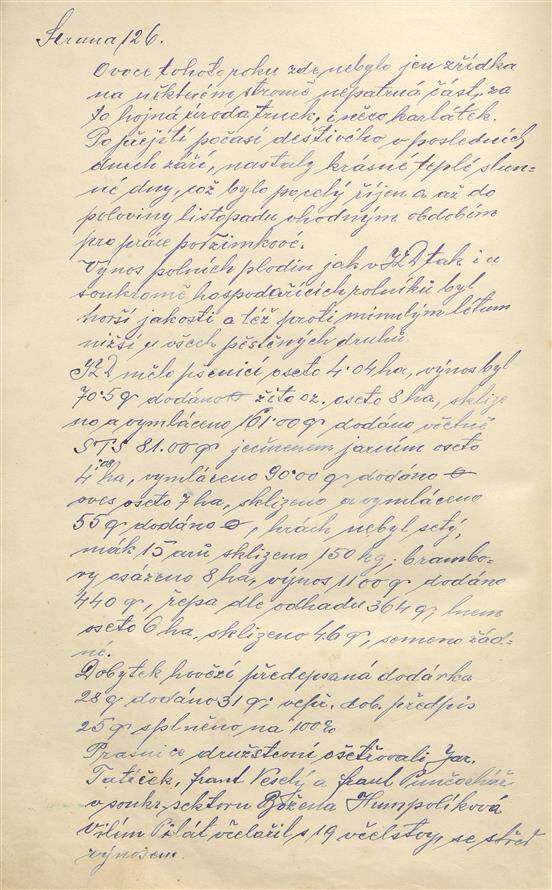 Strana 126.
Ovoce tohoto roku zde nebylo jen zřídka
na některém stromě nepatrná část, za
to hojná úroda trnek, i něco karlátek.
Po přejití počasí deštivého v posledních
dnech září, nastaly krásné teplé slun-
né dny, což bylo po celý říjen a až do
poloviny listopadu vhodným obdobím
pro práce podzimkové.
Výnos polních plodin jak v JZD tak i u
soukromě hospodařících rolníků byl
horší jakosti a též proti minulým létům
nižší u všech pěstěných druhů.
JZD mělo pšenicí oseto 4.04 ha, výnos byl
70.5 q dodáno 0 žito oz. oseto 8 ha, sklize
no a vymláceno 161.00 q dodáno včetně
STS 81.00 q ječmenem jarním oseto
4 ha, vymláceno 90.00 q dodáno 0
oves oseto 7 ha, sklizeno a vymláceno
55 q dodáno 0, hrách nebyl setý,
mák 15 arů sklizeno 150 kg; brambo-
ry osázeno 8 ha, výnos 1100 q dodáno
440 q, řepa dle odhadu 364 q, lnem
oseto 6 ha, sklizeno 46 q, semeno žád-
né.
Dobytek hovězí předepsaná dodávka
28 q dodáno 31 q; vepř. dob. předpis
25 q splněno na 100%
Prasnice družstevní ošetřovali Jar.
Tatíček, frant Veselý a frant Punčochář
v soukr. sektoru Božena Humpolíková
Vilém Pilát včelařil s 19 včelstvy, se střed
výnosem.